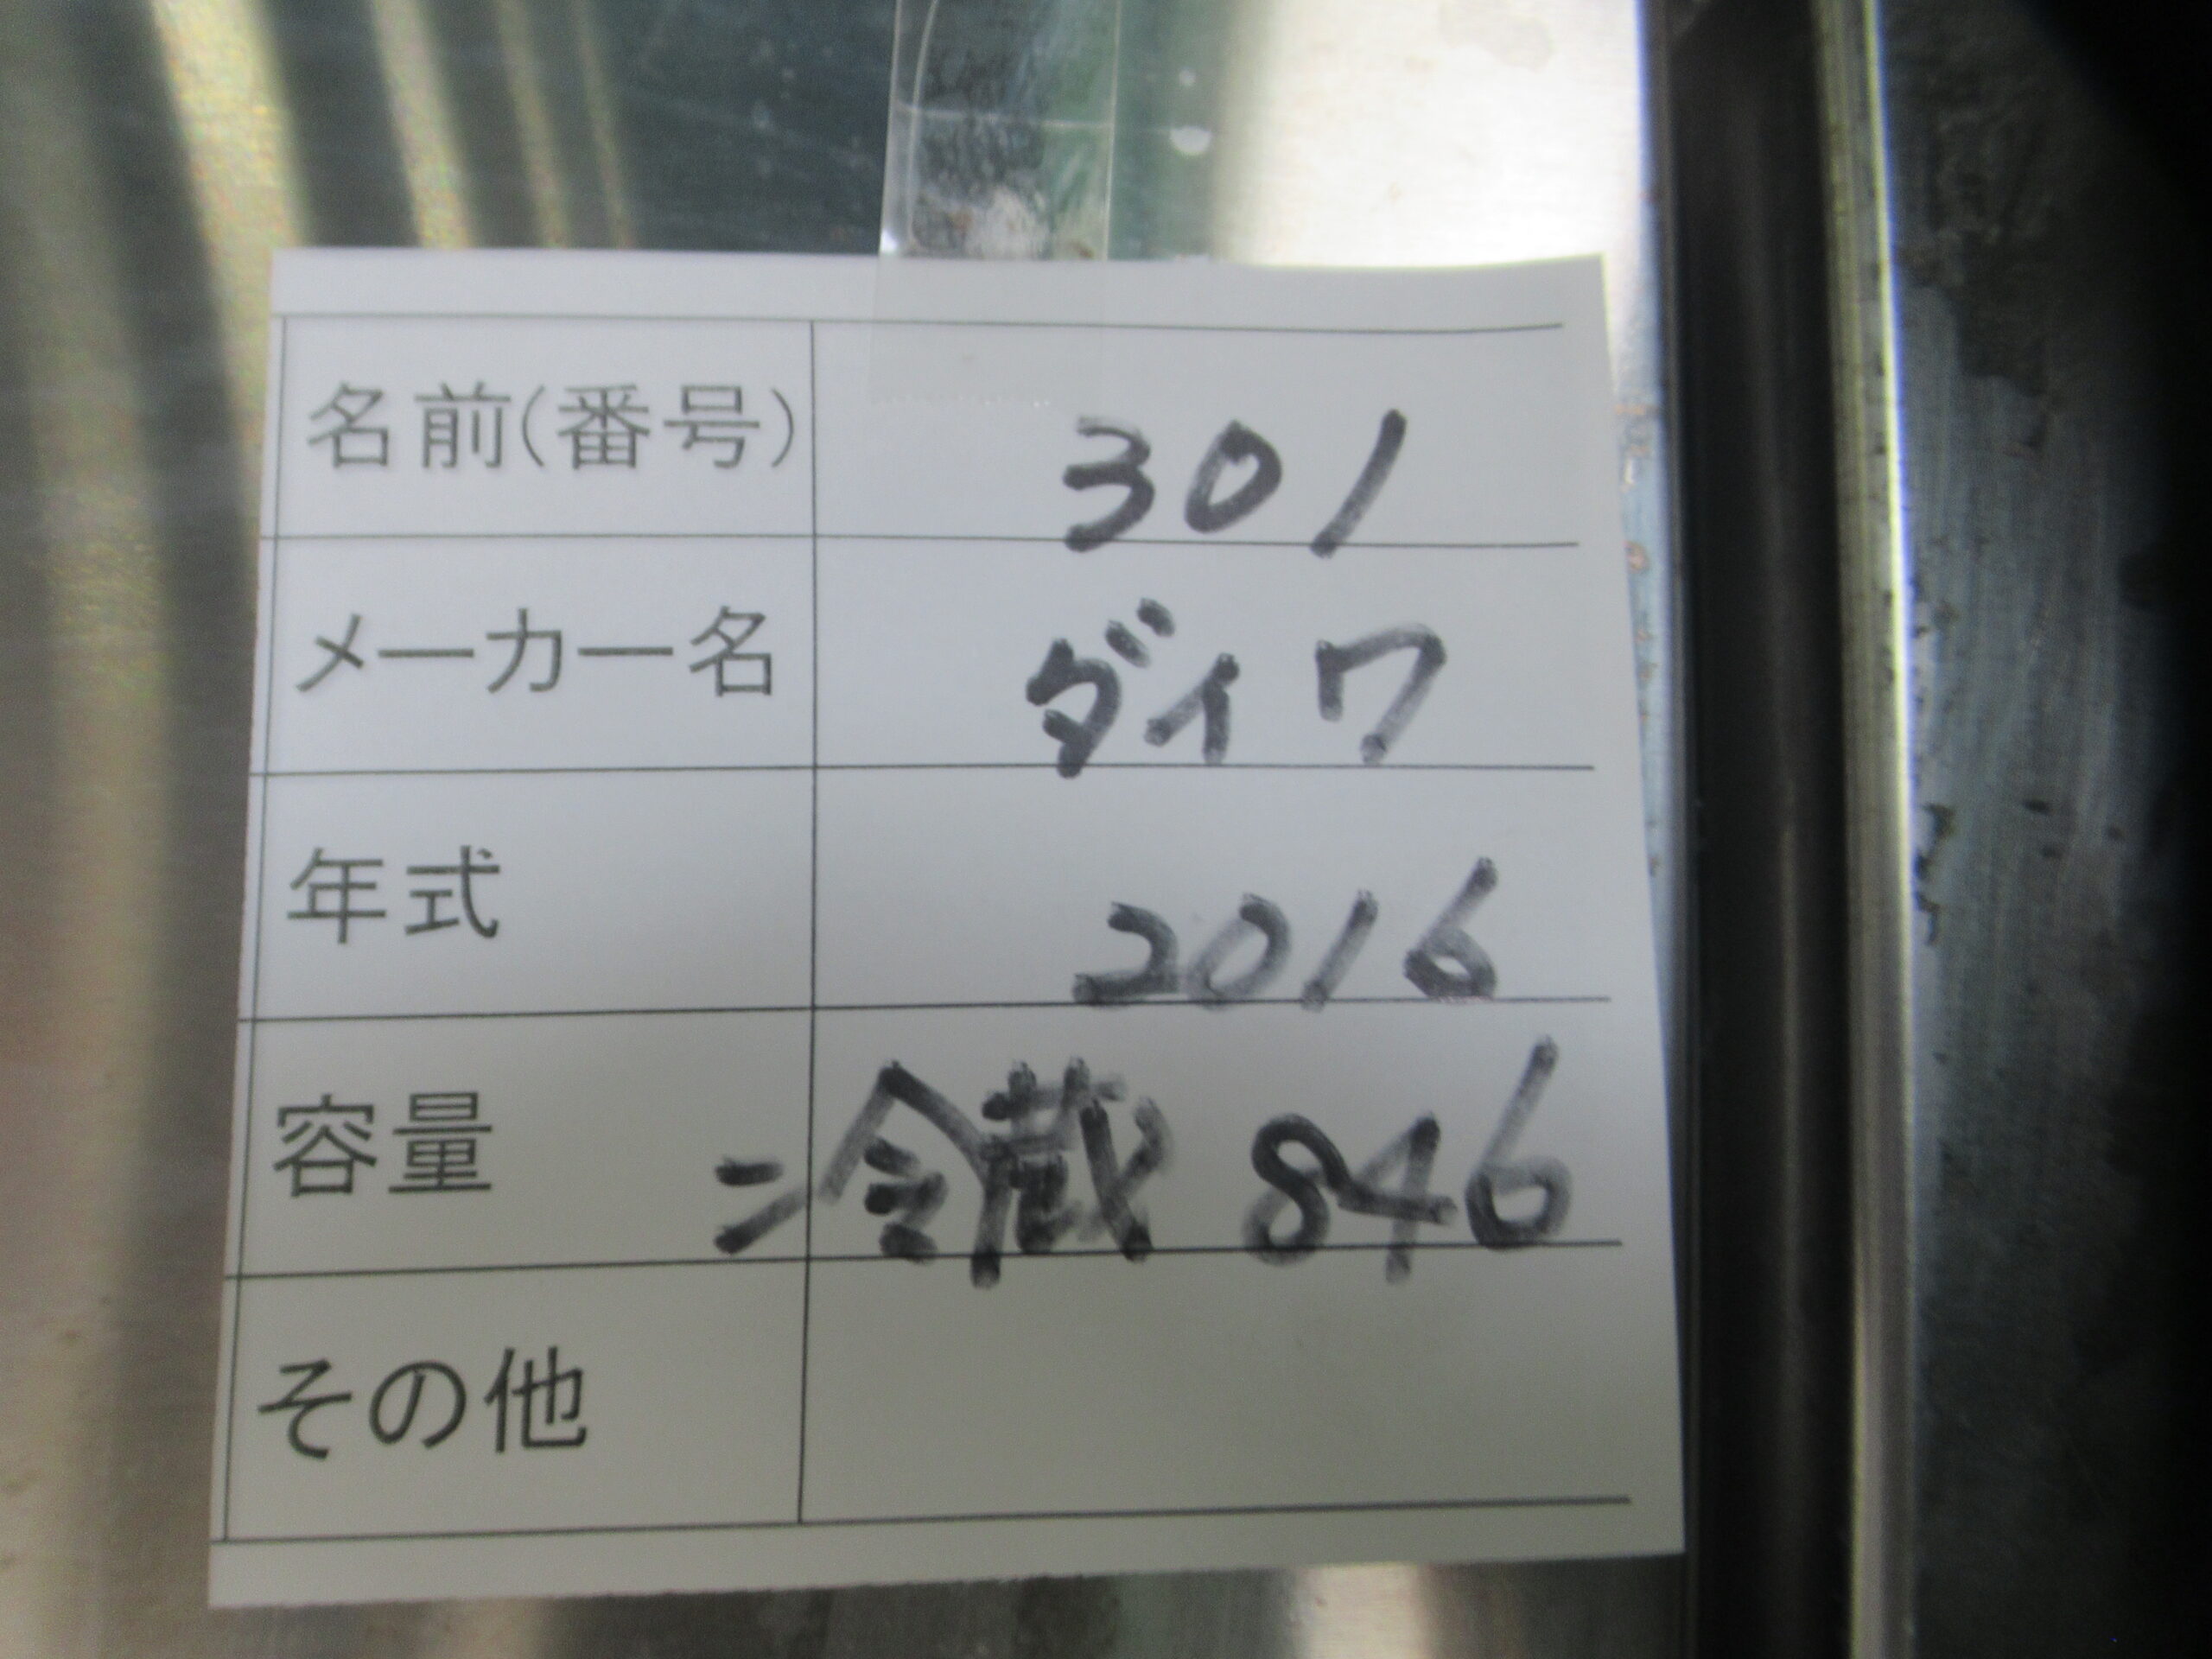 名前(番号) 301
メーカー名 ダイワ
年式 2016
容量 冷蔵 846
その他